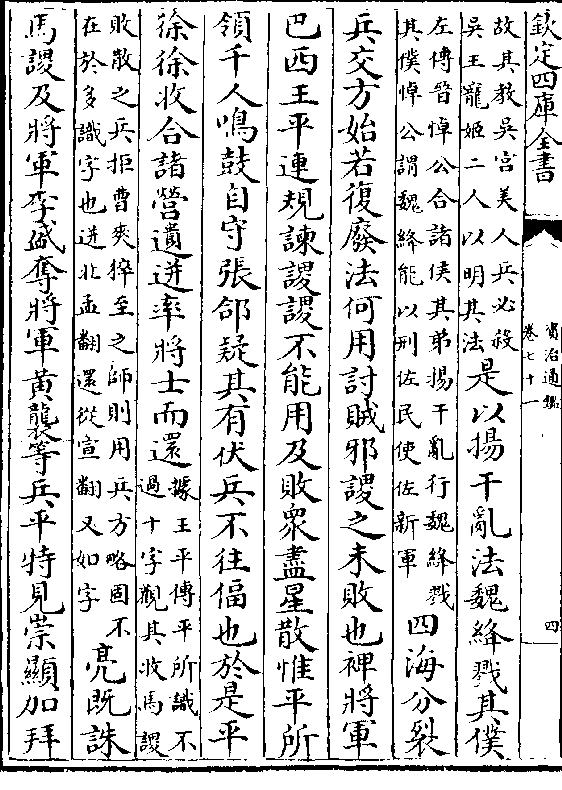 欽定四庫全書
資治通鑑
卷七十一
四
故其教吳宮美人兵必殺
吳王寵姬二人以明其法
是以揚干亂法魏絳戮其僕
左傳晉悼公合諸侯其弟揚干亂行魏絳戮
其僕悼公謂魏絳能以刑佐民使佐新軍
四海分裂
兵交方始若復廢法何用討賊邪謖之未敗也裨將軍
巴西王平連規諫謖謖不能用及敗衆盡星散惟平所
領千人鳴鼓自守張郃疑其有伏兵不往偪也於是平
徐徐收合諸營遺迸率將士而還
據王平傳平所識不
過十字觀其收馬謖
敗散之兵拒曹爽猝至之師則用兵方略固不
在於多識字也迸北孟翻還從宣翻又如字
亮既誅
馬謖及將軍李盛奪將軍黄襲等兵平特見崇顯加拜